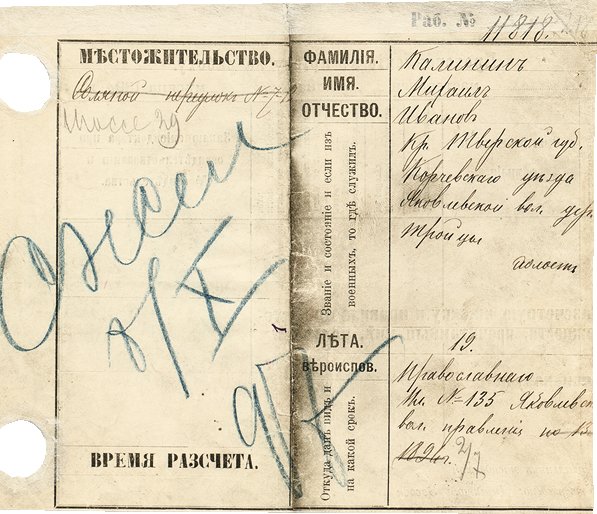 Раб. № 11818
МѢСТОЖИТЕЛЬСТВО.
Соляной переулокъ № 7-
Шоссе 29
ВРЕМЯ РАЗСЧЕТА.
ФАМИЛІЯ.
ИМЯ.
ОТЧЕСТВО.
Калининъ
Михаилъ
Ивановъ
Званіе и состояніе и если изъ
военныхъ, то гдѣ служилъ.
Кр. Тверской губ.
Корчевскаго уѣзда
Яковлевской вол. дер.
Тройцы
холостъ
ЛѢТА.
19.
ВѢРОИСПОВ.
Православнаго
Откуда данъ видъ и
на какой срокъ.
№ 135 Яковлевск
вол. правленія по
2/7